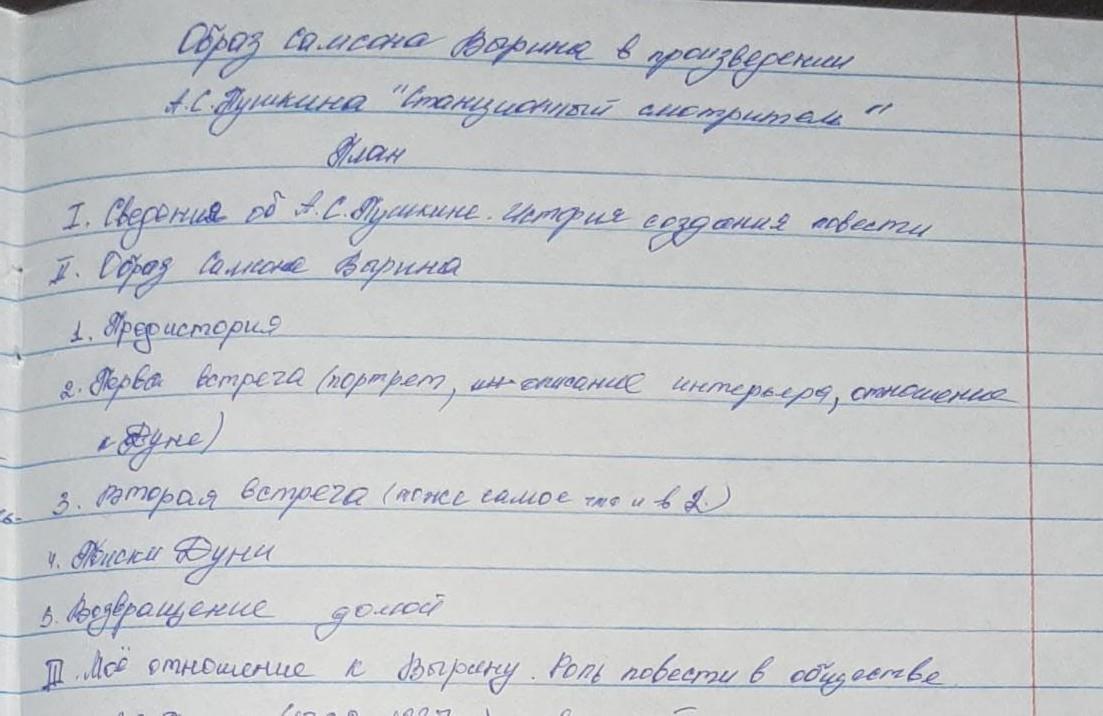 Образ Самсона Вырина в произведении
А.С.Пушкина "Станционный смотритель"
План
I. Сведения об А.С.Пушкине. История создания повести
II. Образ Самсона Вырина
1. Предистория
2. Первая встреча (портрет, описание интерьера, отношение
к Дуне)
3. Вторая встреча (тоже самое что и в 2.)
4. Поиски Дуни
5. Возвращение домой
III. Моё отношение к Вырину. Роль повести в обществе